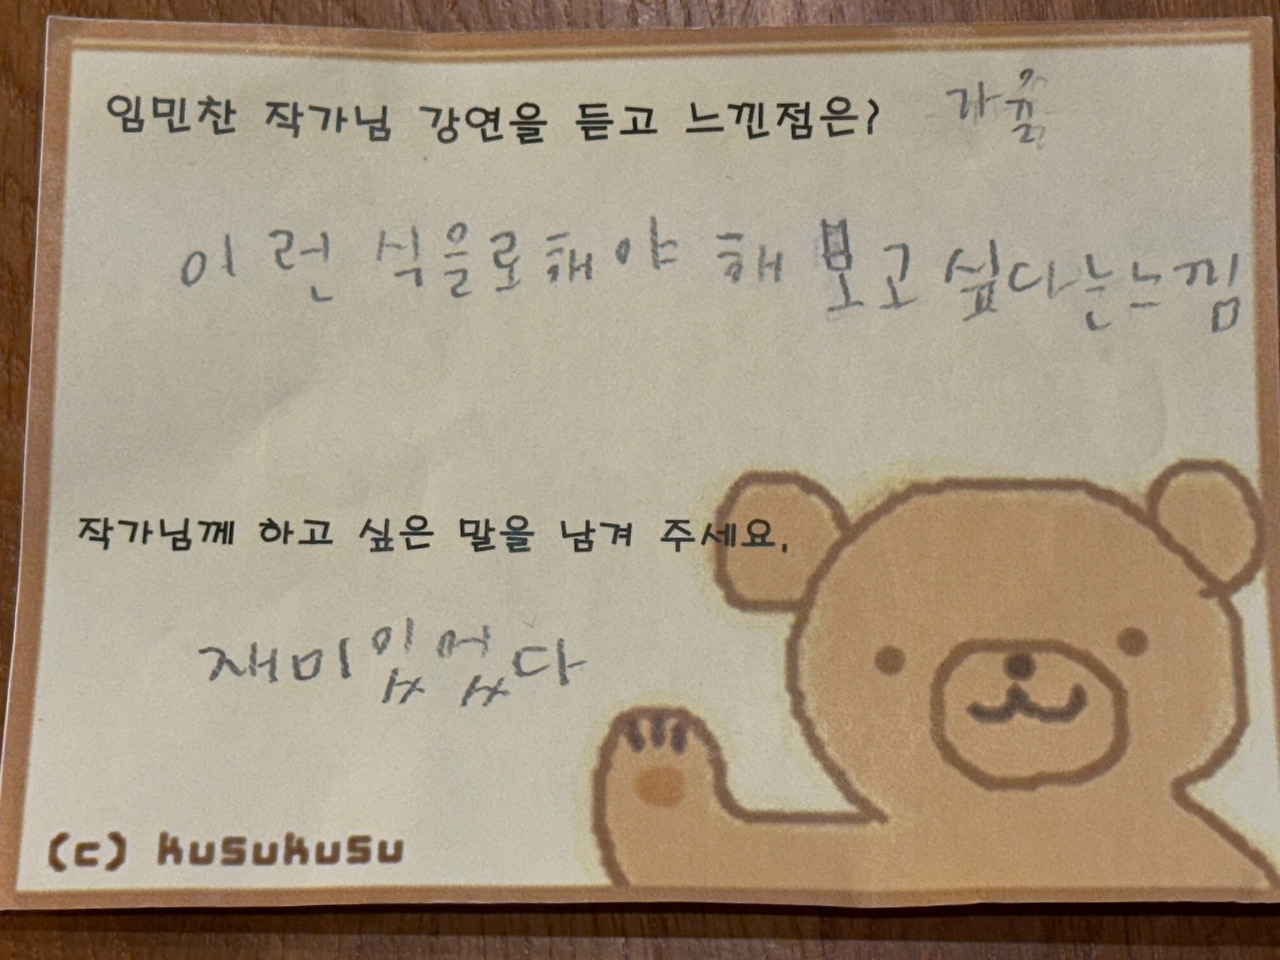 임민찬 작가님 강연을 듣고 느낀점은?
이런 식을로해야 해 보고싶다는느낌
작가님께 하고 싶은 말을 남겨 주세요.
재미있었다
(c) kusukusu